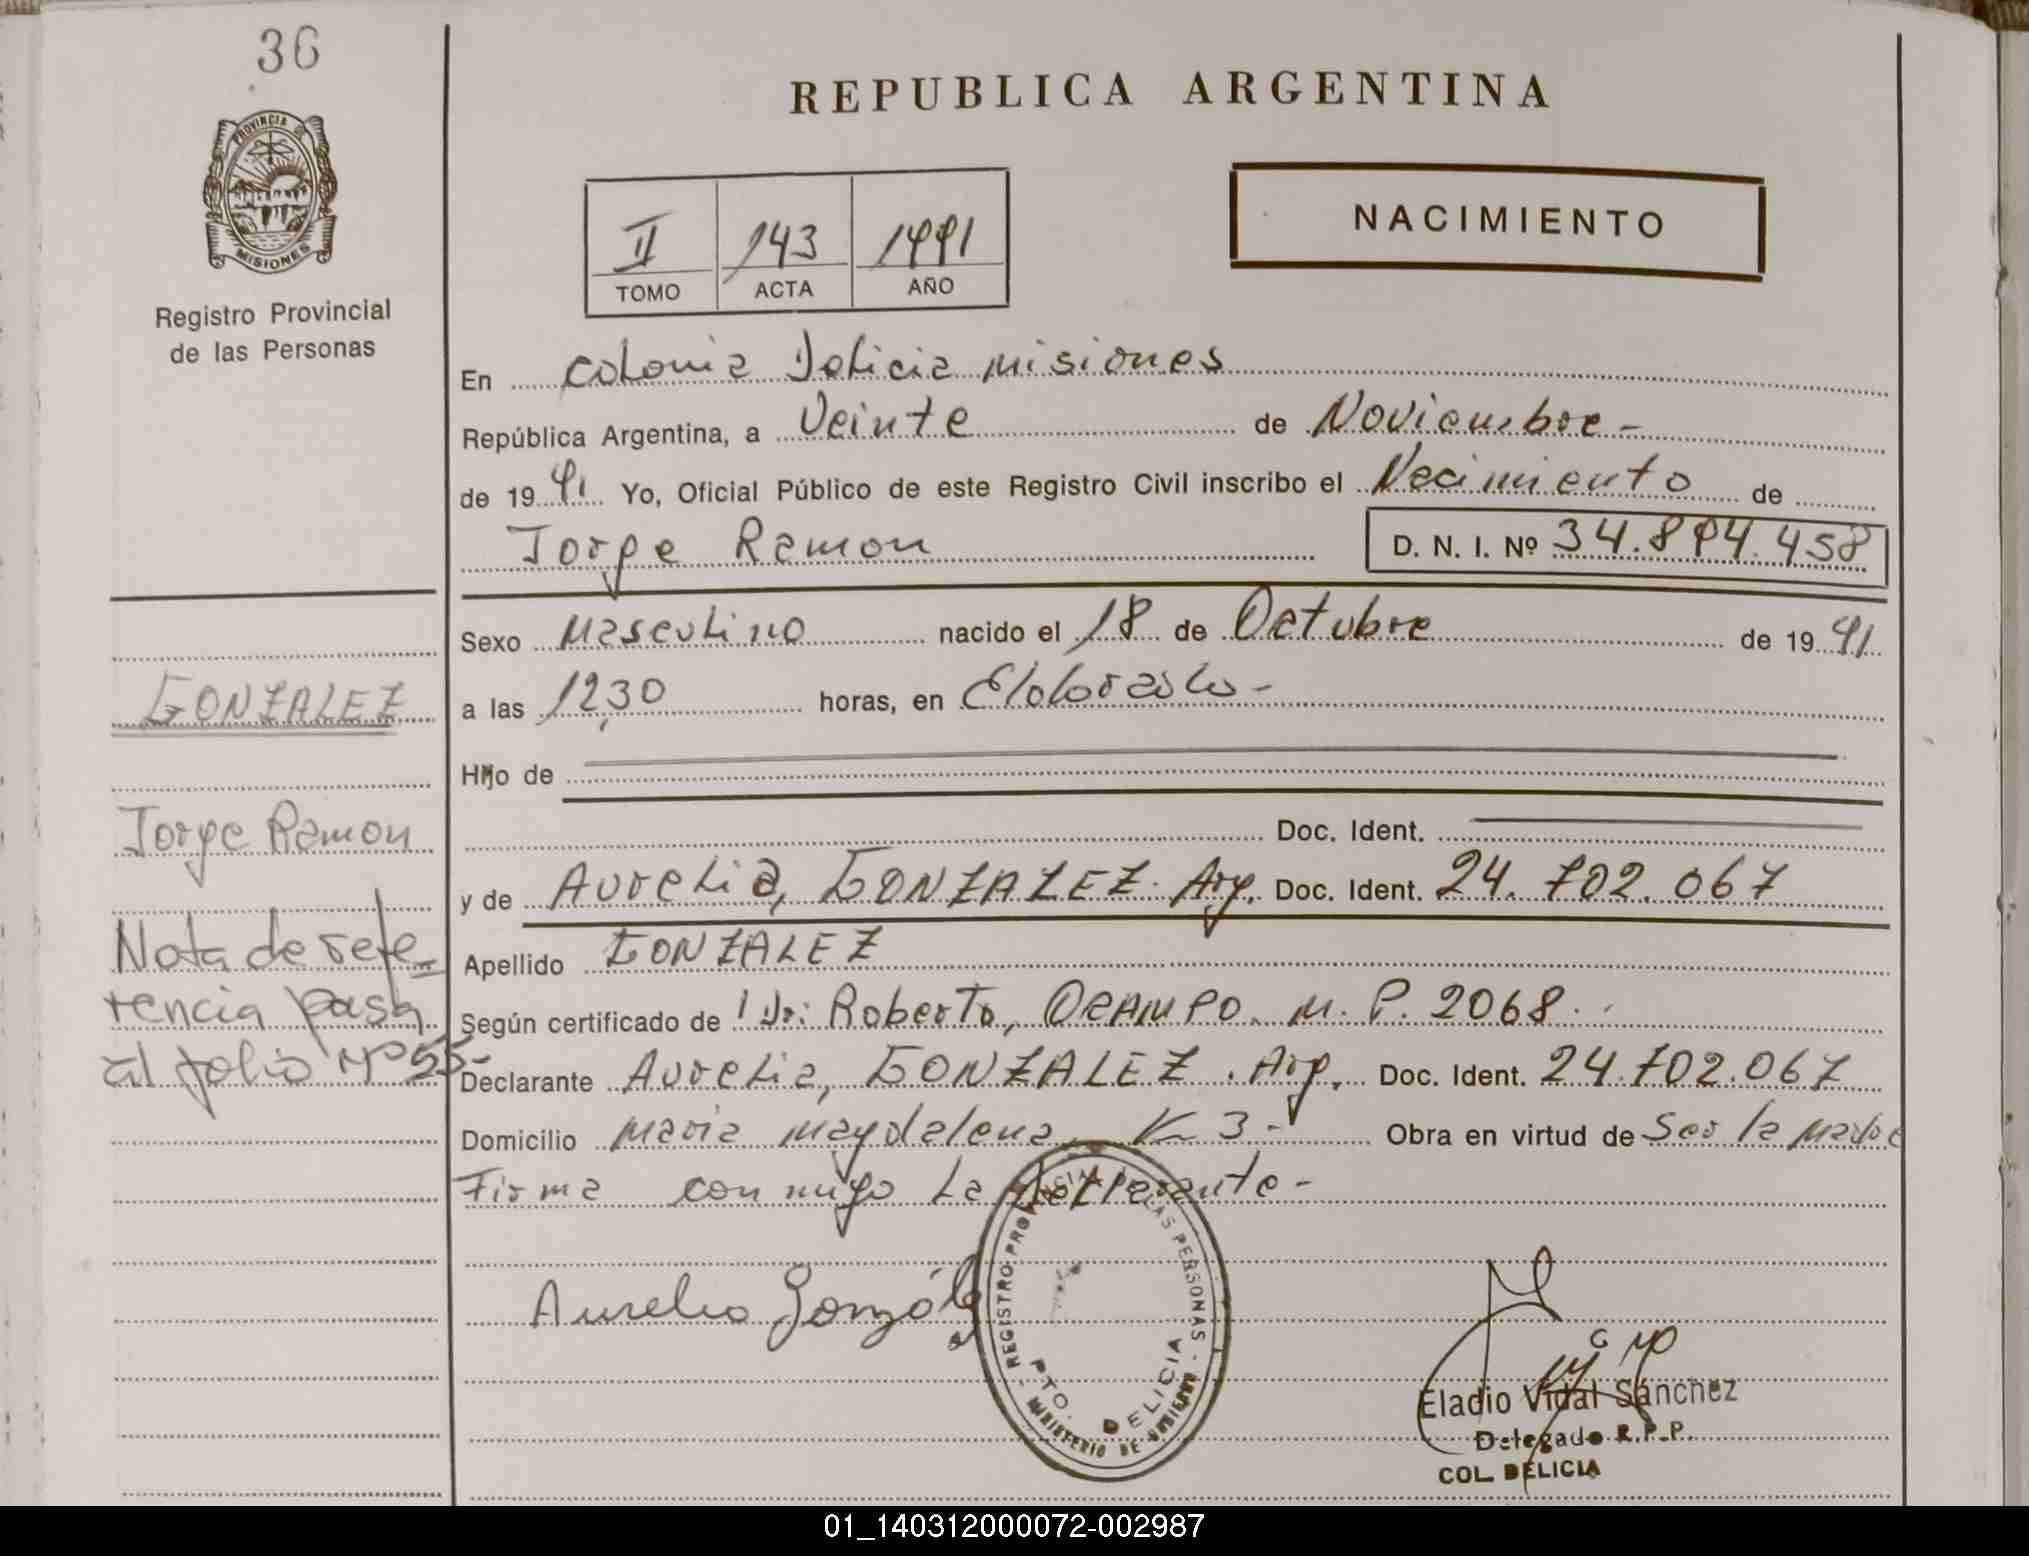 36
REPUBLICA ARGENTINA
PROVINCIA DE
MISIONES
Registro Provincial
de las Personas
II 143 1991
TOMO ACTA AÑO
NACIMIENTO
En Colonia Delicia Misiones
República Argentina, a Veinte de Noviembre -
de 19 91 Yo, Oficial Público de este Registro Civil inscribo el Nacimiento de
Jorge Ramon D. N. I. Nº 34.894.458
Sexo Masculino nacido el 18 de Octubre de 19 91
a las 12,30 horas, en Eldorado -
Hijo de
Doc. Ident.
y de Aurelia, GONZALEZ. Arg. Doc. Ident. 24.702.067
Apellido GONZALEZ
Según certificado de Dr: Roberto, OCAMPO. M. P. 2068.
Declarante Aurelia, GONZALEZ. Arg. Doc. Ident. 24.702.067
Domicilio Maria Magdalena, Km 3 - Obra en virtud de Ser la Madre
Firma conmigo La declarante -
GONZALEZ
Jorge Ramon
Nota de refe-
rencia pasa
al folio Nº 55-
Aurelia González
REGISTRO PROVINCIAL DE LAS PERSONAS
PTO. DELICIA
MINISTERIO DE GOBIERNO
Eladio Vidal Sánchez
Delegado R.P.P.
COL. DELICIA
01_140312000072-002987